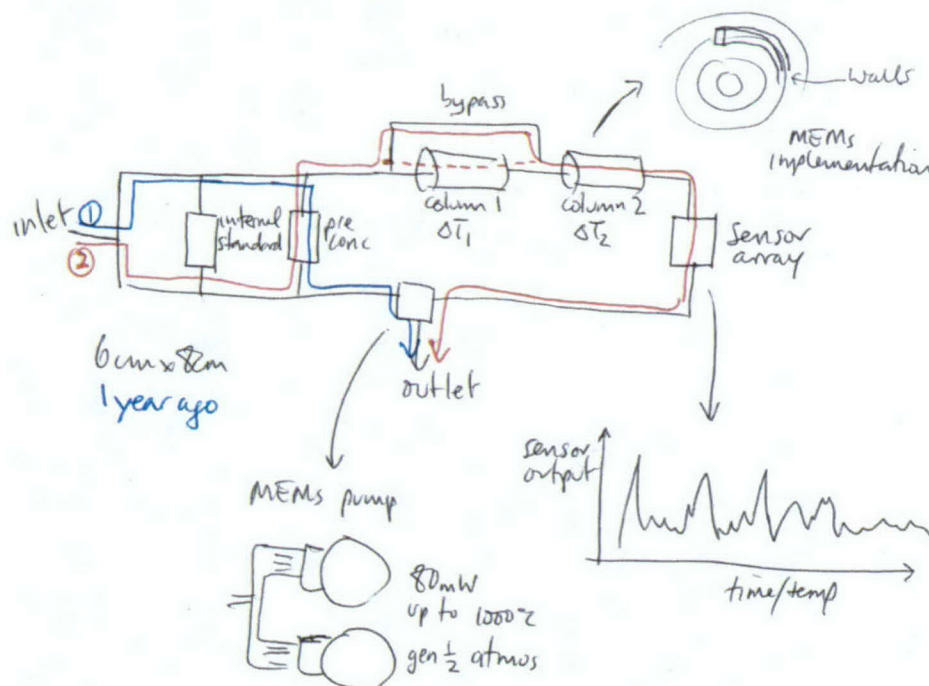 bypass
walls
MEMs
implementation
inlet
①
②
internal
standard
pre
conc
column 1
ΔT₁
column 2
ΔT₂
sensor
array
6cm x 8cm
1 year ago
outlet
MEMs pump
80mW
up to 1000°C
gen ½ atmos
sensor
output
time/temp